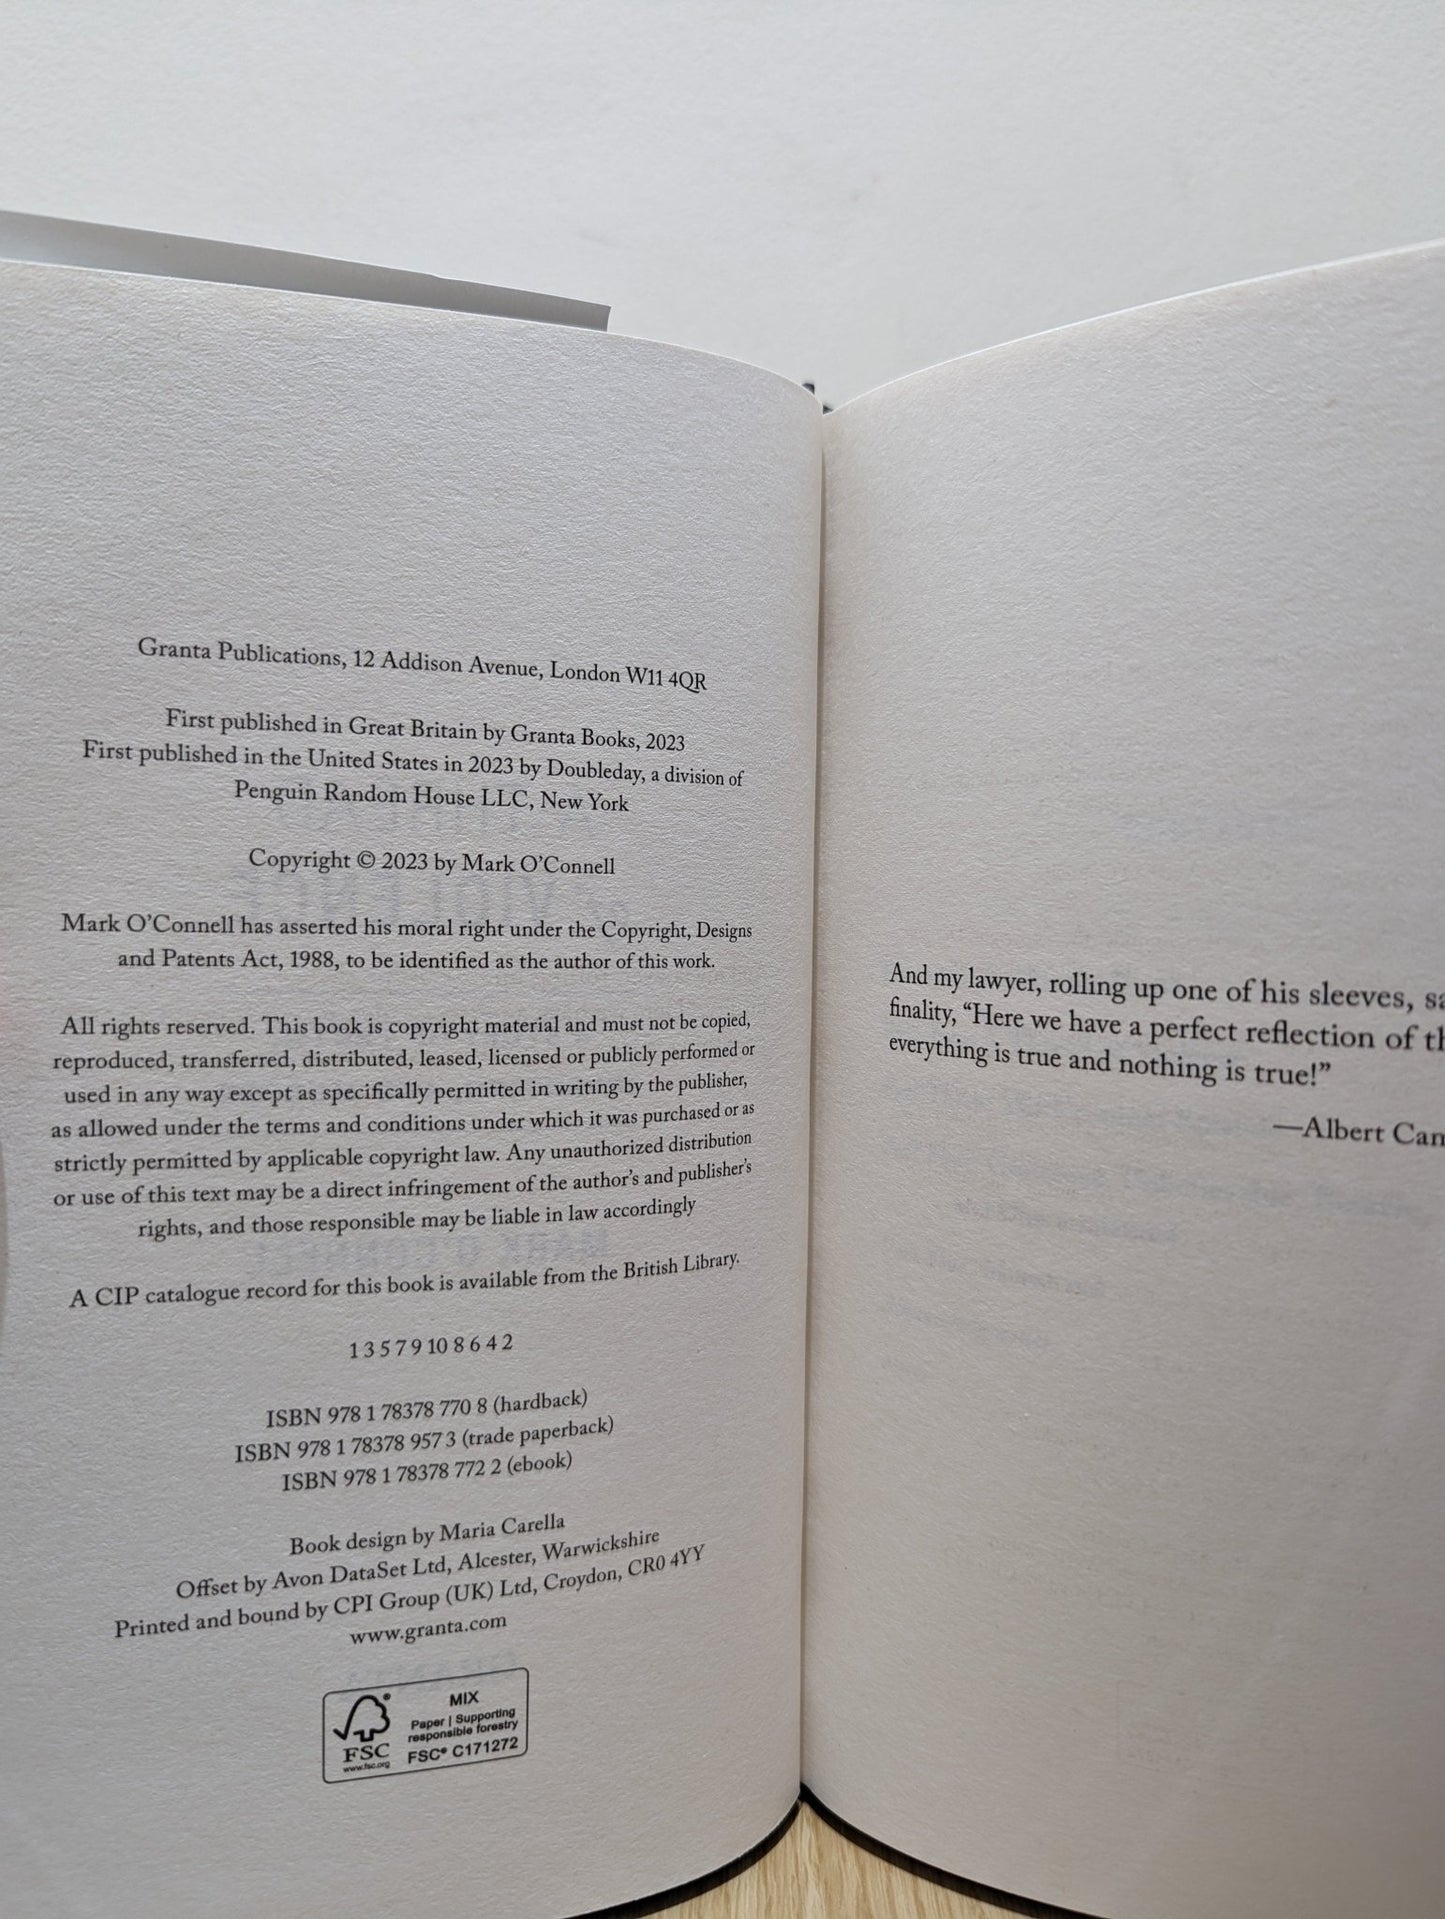 Granta Publications, 12 Addison Avenue, London W11 4QR
First published in Great Britain by Granta Books, 2023
First published in the United States in 2023 by Doubleday, a division of
Penguin Random House LLC, New York
Copyright © 2023 by Mark O’Connell
Mark O’Connell has asserted his moral right under the Copyright, Designs
and Patents Act, 1988, to be identified as the author of this work.
All rights reserved. This book is copyright material and must not be copied,
reproduced, transferred, distributed, leased, licensed or publicly performed or
used in any way except as specifically permitted in writing by the publisher,
as allowed under the terms and conditions under which it was purchased or as
strictly permitted by applicable copyright law. Any unauthorized distribution
or use of this text may be a direct infringement of the author’s and publisher’s
rights, and those responsible may be liable in law accordingly
A CIP catalogue record for this book is available from the British Library.
1 3 5 7 9 10 8 6 4 2
ISBN 978 1 78378 770 8 (hardback)
ISBN 978 1 78378 957 3 (trade paperback)
ISBN 978 1 78378 772 2 (ebook)
Book design by Maria Carella
Offset by Avon DataSet Ltd, Alcester, Warwickshire
Printed and bound by CPI Group (UK) Ltd, Croydon, CR0 4YY
www.granta.com
FSC
www.fsc.org
MIX
Paper | Supporting
responsible forestry
FSC® C171272
And my lawyer, rolling up one of his sleeves,
finality, “Here we have a perfect reflection of
everything is true and nothing is true!”
—Albert